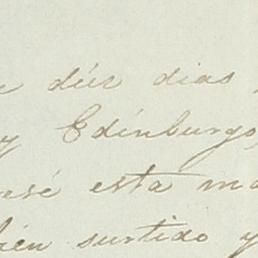 dír dias
y Edinburgo,
esta ma
bien surtido y